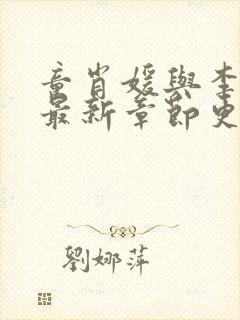 童肖媛與李
最新章節史
劉娜萍